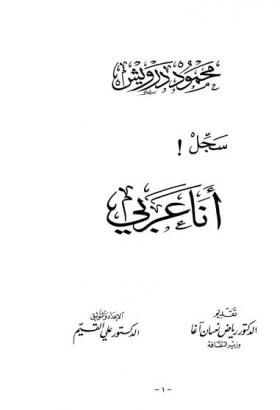 محمود درويش
سَجِّلْ !
أنا عَرَبي
تقديم
الدكتور رياض نعسان آغا
وزير الثقافة
الإعداد والتوثيق
الدكتور علي القيّم
- ١ -